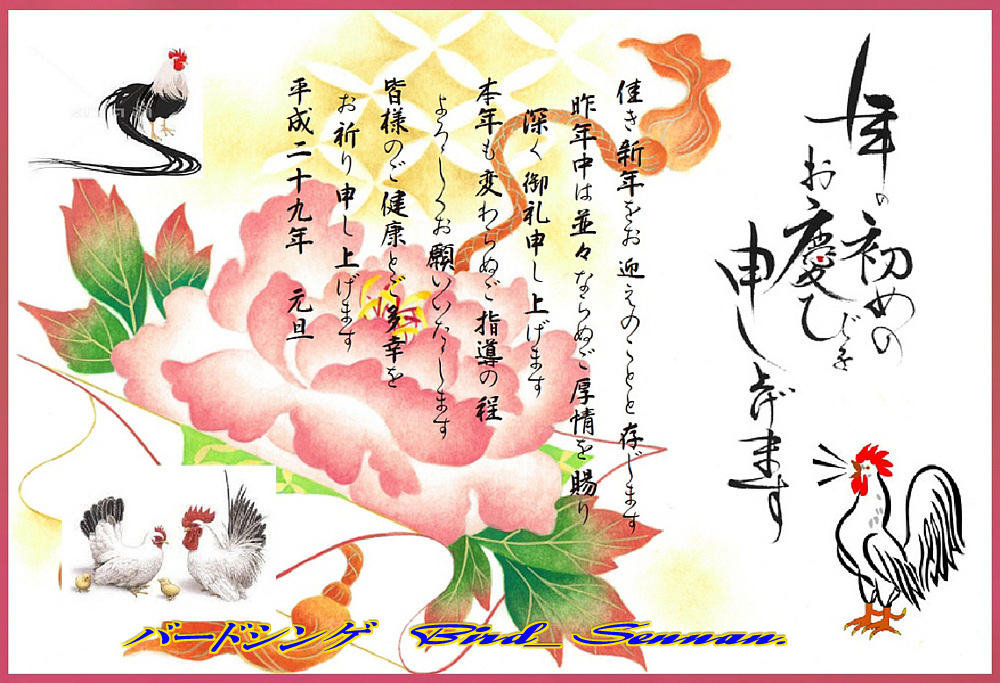 年の初めの
お慶びを
申し上げます
佳き新年をお迎えのことと存じます
昨年中は並々ならぬご厚情を賜り
深く御礼申し上げます
本年も変わらぬご指導の程
よろしくお願いいたします
皆様のご健康とご多幸を
お祈り申し上げます
平成二十九年 元旦
バードシング Bird_ Sennan.